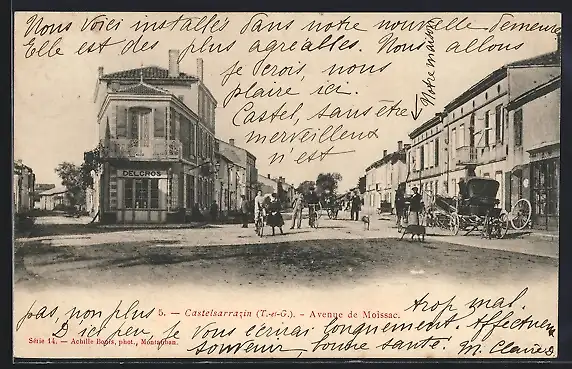 Nous voici installés dans notre nouvelle demeure
Elle est des plus agréables. Nous allons
je verois, nous
plaire ici.
Castel, sans être
merveilleux
n'est
Notre maison
DELCROS
5. — Castelsarrazin (T.-et-G.). - Avenue de Moissac.
pas, non plus trop mal.
D'ici peu, je vous écrirai longuement. Affectueux
souvenir, bonne santé! M. Claire
Série 14. — Achille Bouis, phot., Montauban.